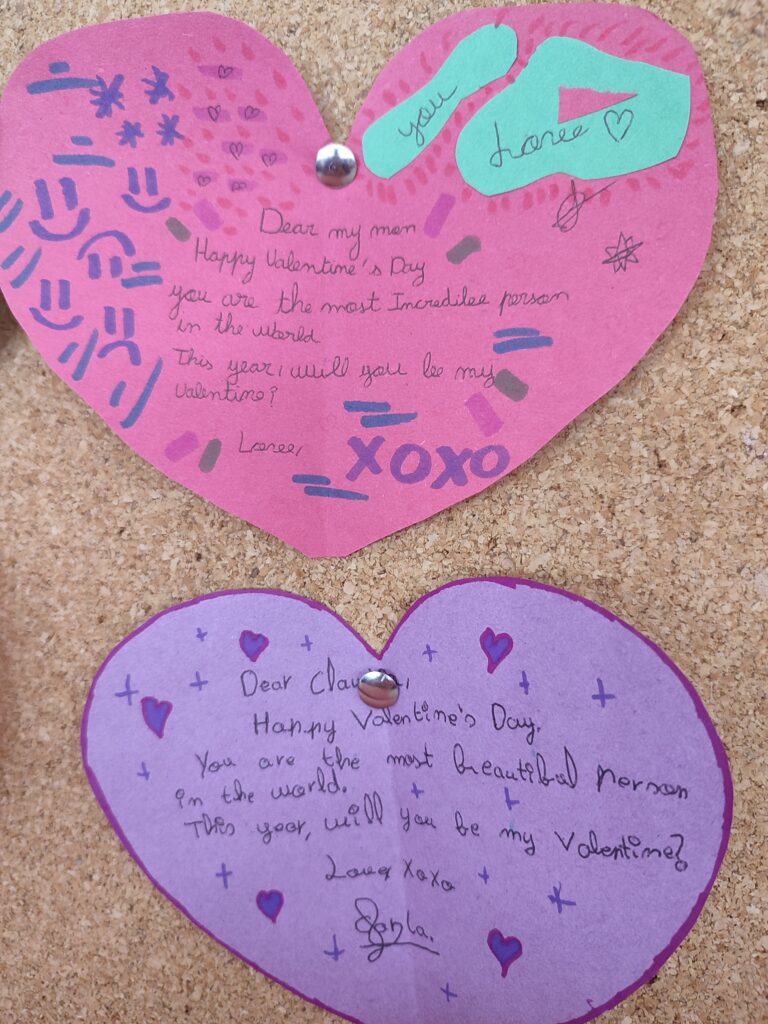 you
Loree
Dear my mom
Happy Valentine's Day
you are the most Incredilee person
in the world
This year, will you be my
Valentine?
Loree,
XOXO
Dear
Happy Valentine's Day.
You are the most breautibul person
in the world.
This year, will you be my Valentine?
Love, XoXo